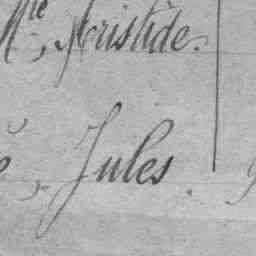 Mie, Aristide.
e, Jules.